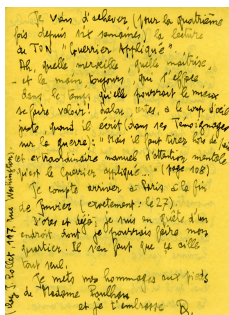 Je viens d'achever (pour la quatrième
fois depuis six semaines) la lecture
de TON "Guerrier Appliqué".
Ah, quelle merveille, quelle maîtrise,
et la main toujours qui l'efface
dans le temps qu'elle pourrait le mieux
se faire valoir!
juste quand il écrit (dans ses Témoignages
sur la guerre): "Mais il faut
et extraordinaire manuel d'attention mentale
qu'est le Guerrier appliqué..." (page 108).
Je compte arriver à Paris à la fin
de Janvier (exactement: le 27).
D'ores et déjà, je suis en quête d'un
endroit dont je pourrais faire mon
quartier. Il s'en faut que ça aille
tout seul.
Je mets mes hommages aux pieds
de Madame Paulhan
et je t'embrasse
(chez J. Pollet 117, rue Washington)